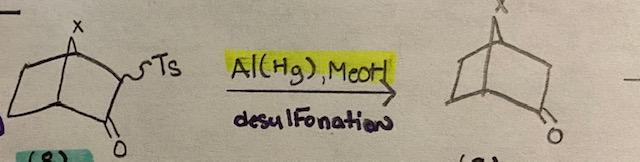 X
Ts
O
(8)
Al(Hg), MeOH
desulfonation
X
O